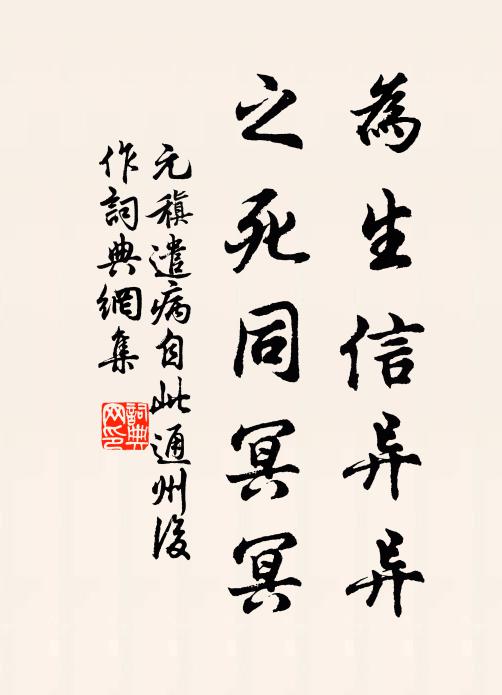 為生信异异
之死同冥冥
元稹遣病自此通州後
作詞典網集
詞典網印